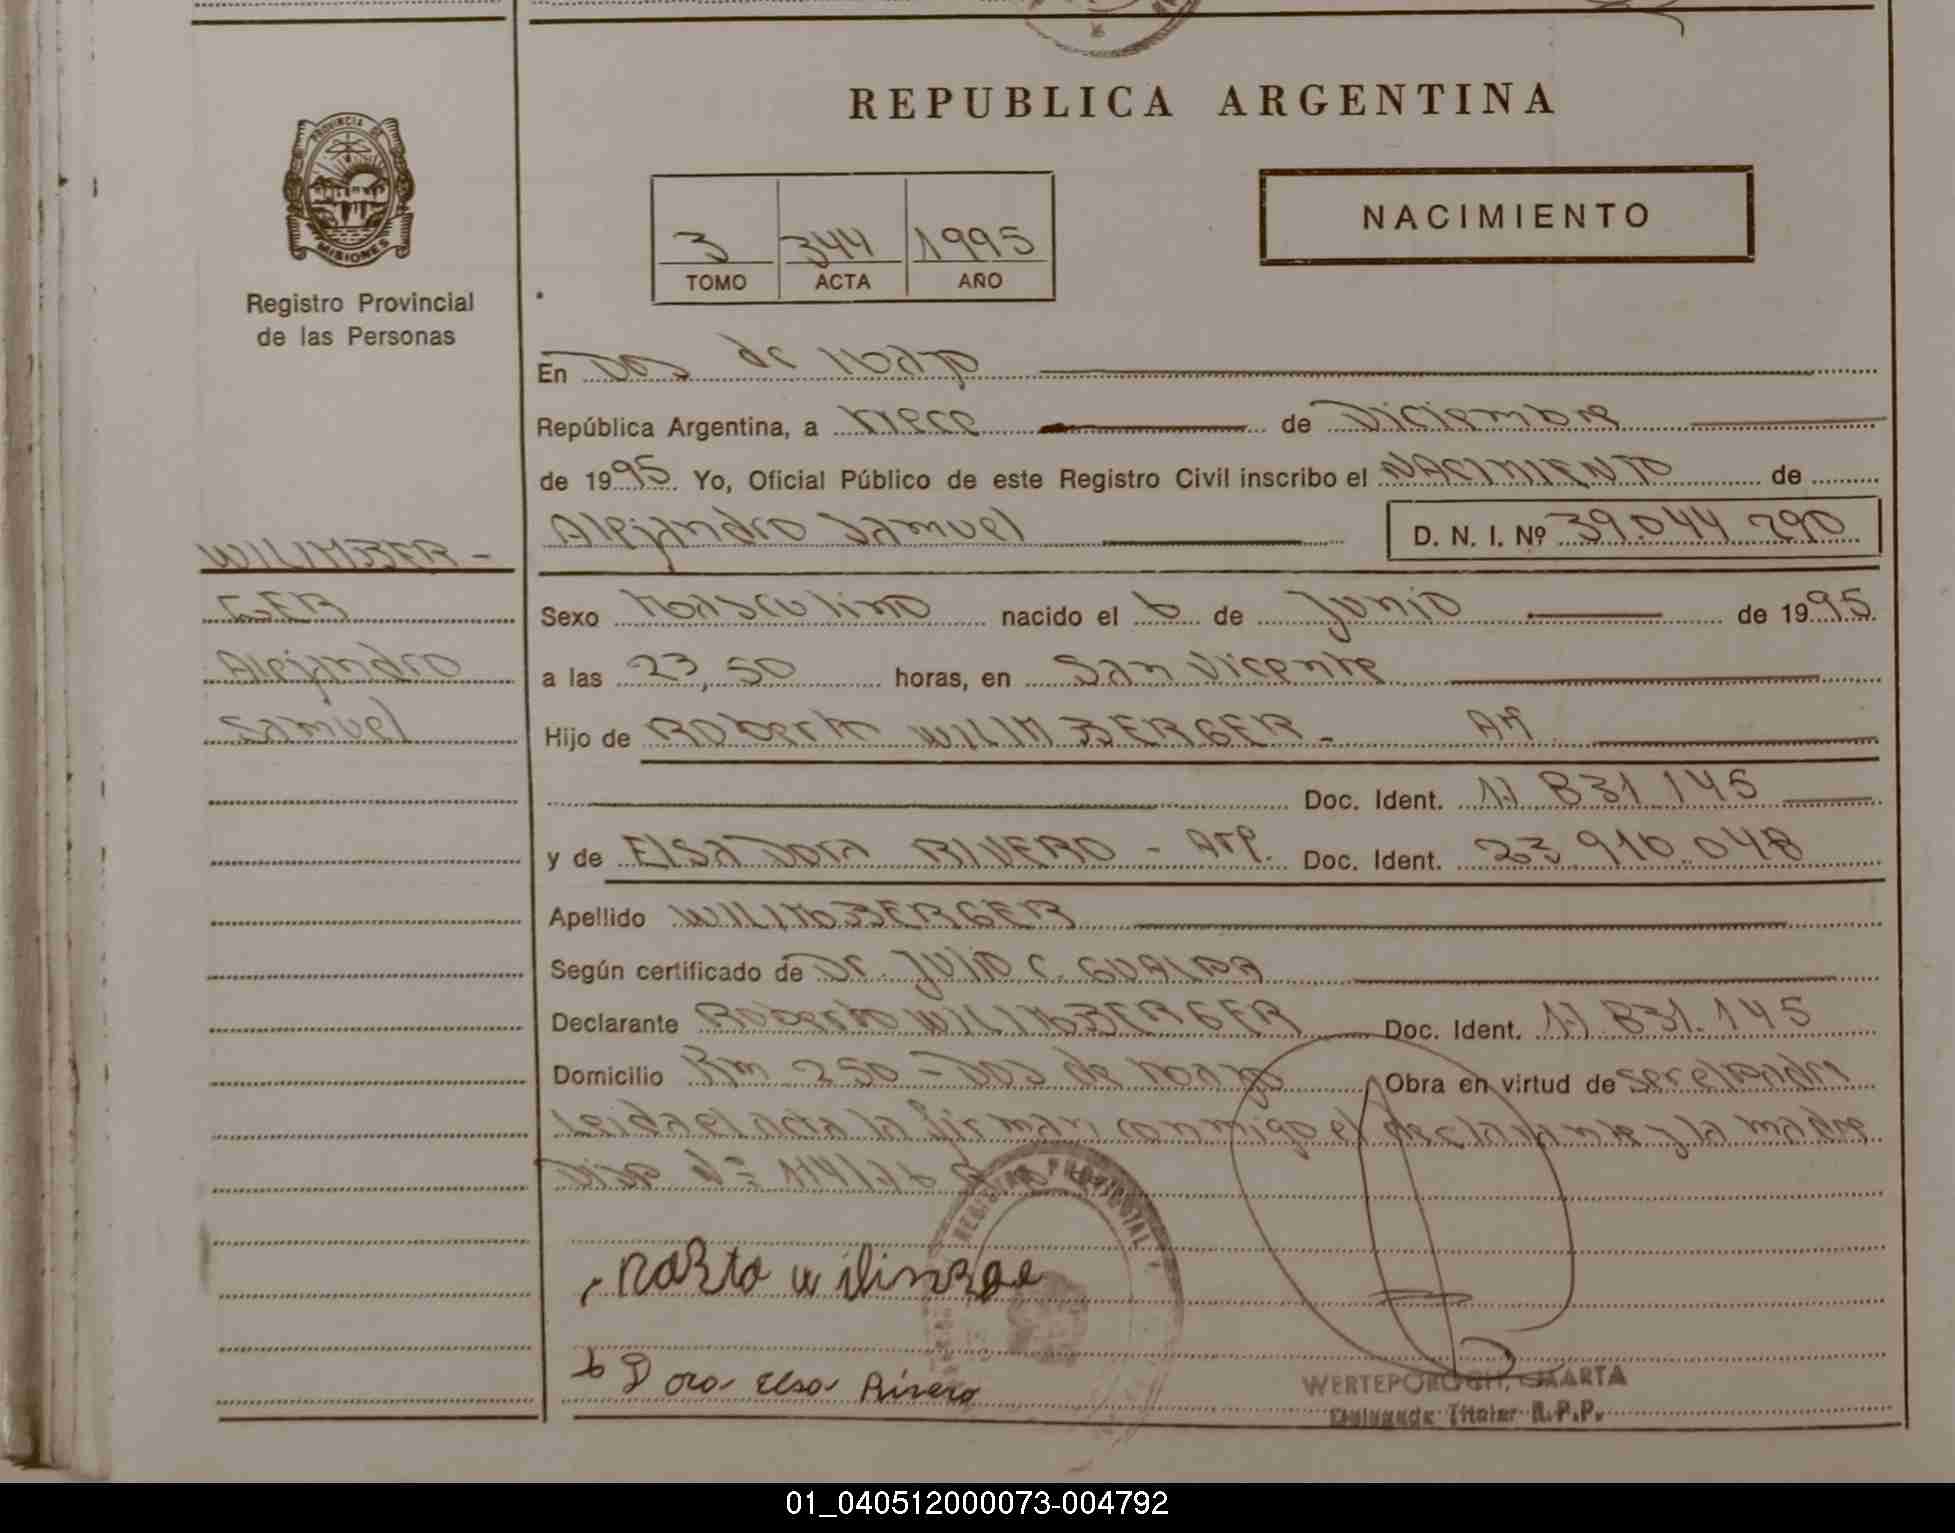 REPUBLICA ARGENTINA
PROVINCIA DE
MISIONES
Registro Provincial
de las Personas
3 344 1995
TOMO ACTA AÑO
NACIMIENTO
En Dos de Mayo
República Argentina, a trece de Diciembre
de 1995. Yo, Oficial Público de este Registro Civil inscribo el NACIMIENTO de
Alejandro Samuel D. N. I. Nº 39.044.290
WILIMBER-
GER
Alejandro
Samuel
Sexo Masculino nacido el 6 de Junio de 1995.
a las 23,50 horas, en San Vicente
Hijo de Roberto WILIMBERGER-
Doc. Ident. 17.831.145
y de Elsa Dora RIVERO - Arg. Doc. Ident. 23.910.048
Apellido WILIMBERGER
Según certificado de Dr. Julio C.
Declarante Roberto WILIMBERGER Doc. Ident. 17.831.145
Domicilio Km 250 - Dos de Mayo Obra en virtud de ser el padre
Leida el acta la firman conmigo el declarante y la madre
REGISTRO PROVINCIAL
Dora Elsa Rivero
MARTA
Delegada Titular R.P.P.
01_040512000073-004792